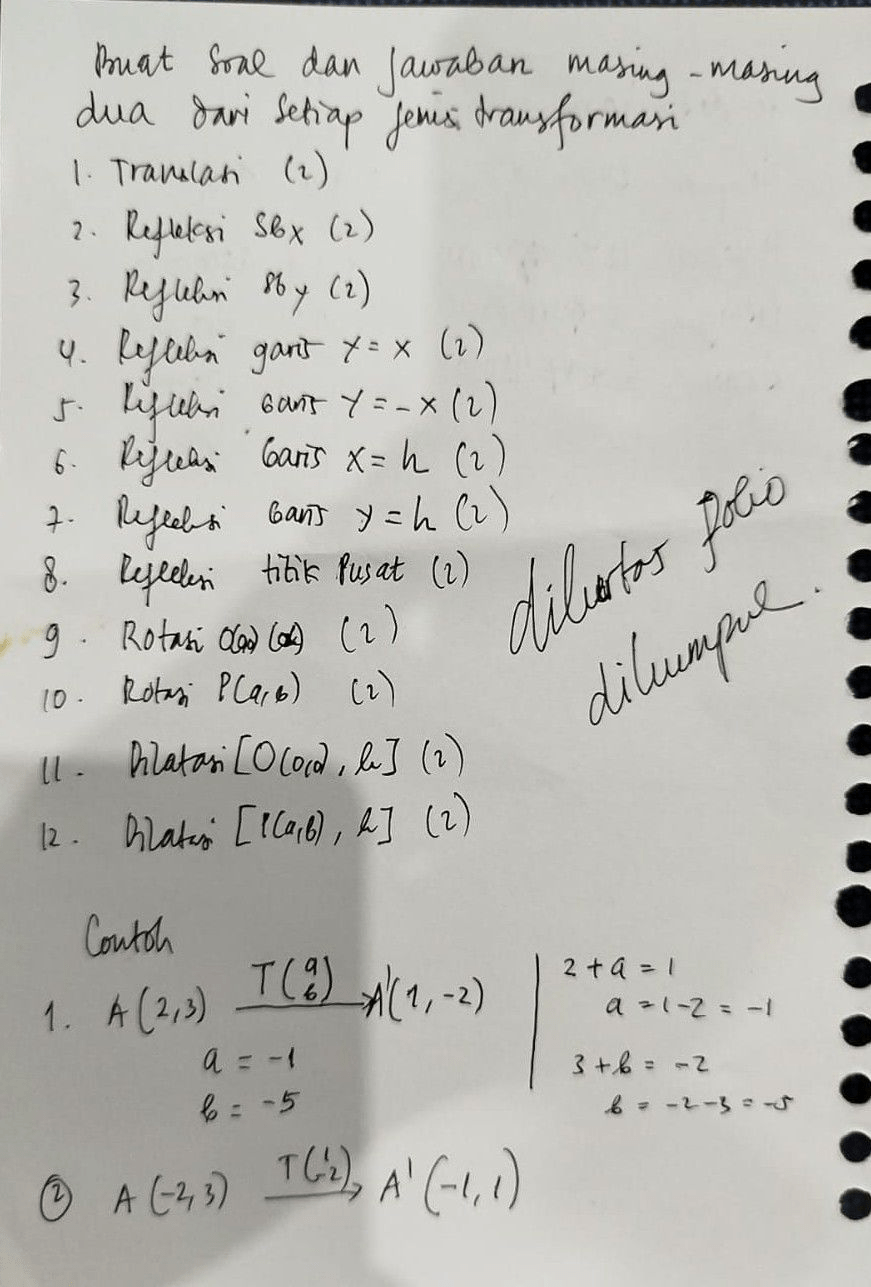 Buat Soal dan Jawaban masing-masing
dua dari Setiap Jenis transformasi
1. Translasi (2)
2. Refleksi Sbx (2)
3. Refleksi Sby (2)
4. Refleksi garis Y = x (2)
5. Refleksi Garis Y = -x (2)
6. Refleksi Garis X = h (2)
7. Refleksi Garis y = h (2)
8. Refleksi titik Pusat (2)
9. Rotasi (2)
10. Rotasi P(a,b) (2)
11. Dilatasi [O(0,0), k] (2)
12. Dilatasi [P(a,b), k] (2)
dikertas folio
dikumpul.
Contoh
1. A(2,3) T(a b) → A'(1,-2)
a = -1
b = -5
2 + a = 1
a = 1-2 = -1
3 + b = -2
b = -2-3 = -5
② A(-2,3) T(1 -2) → A'(-1,1)